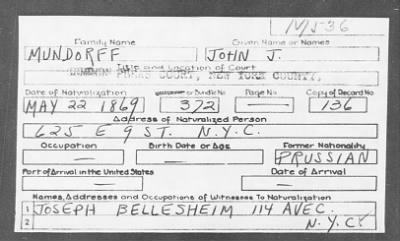 M536
Family Name Given Name or Names
MUNDORFF JOHN J.
Title and Location of Court
COMMON PLEAS COURT, NEW YORK COUNTY.
Date of Naturalization or Bundle No Page No Copy of Record No
MAY 22 1869 372 — 136
Address of Naturalized Person
625 E 9 ST. N.Y.C.
Occupation Birth Date or Age Former Nationality
— — PRUSSIAN
Port of Arrival in the United States Date of Arrival
— —
Names, Addresses and Occupations of Witnesses To Naturalization
1 JOSEPH BELLESHEIM 114 AVE C.
2 N.Y.C.